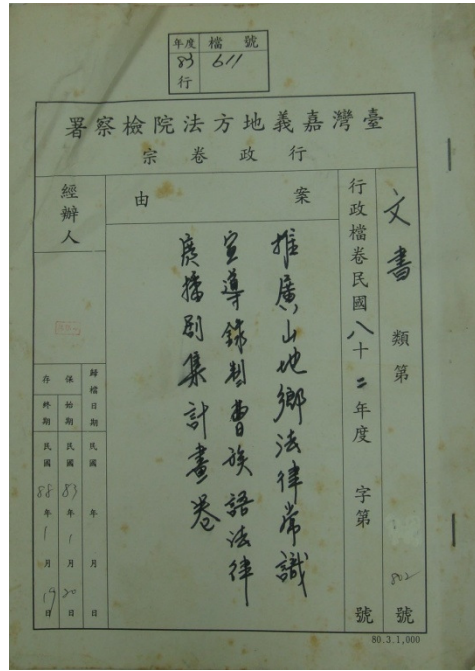 年度 檔號
83 611
行
臺灣嘉義地方法院檢察署
行政卷宗
文書 類第 802 號
行政檔卷民國八十二年度 字第 號
案由
推廣山地鄉法律常識
宣導錄製曹族語法律
廣播劇集計畫卷
經辦人
歸檔日期 民國 年 月 日
保存 始期 民國 83 年 1 月 20 日
終期 民國 88 年 1 月 19 日
80.3.1,000